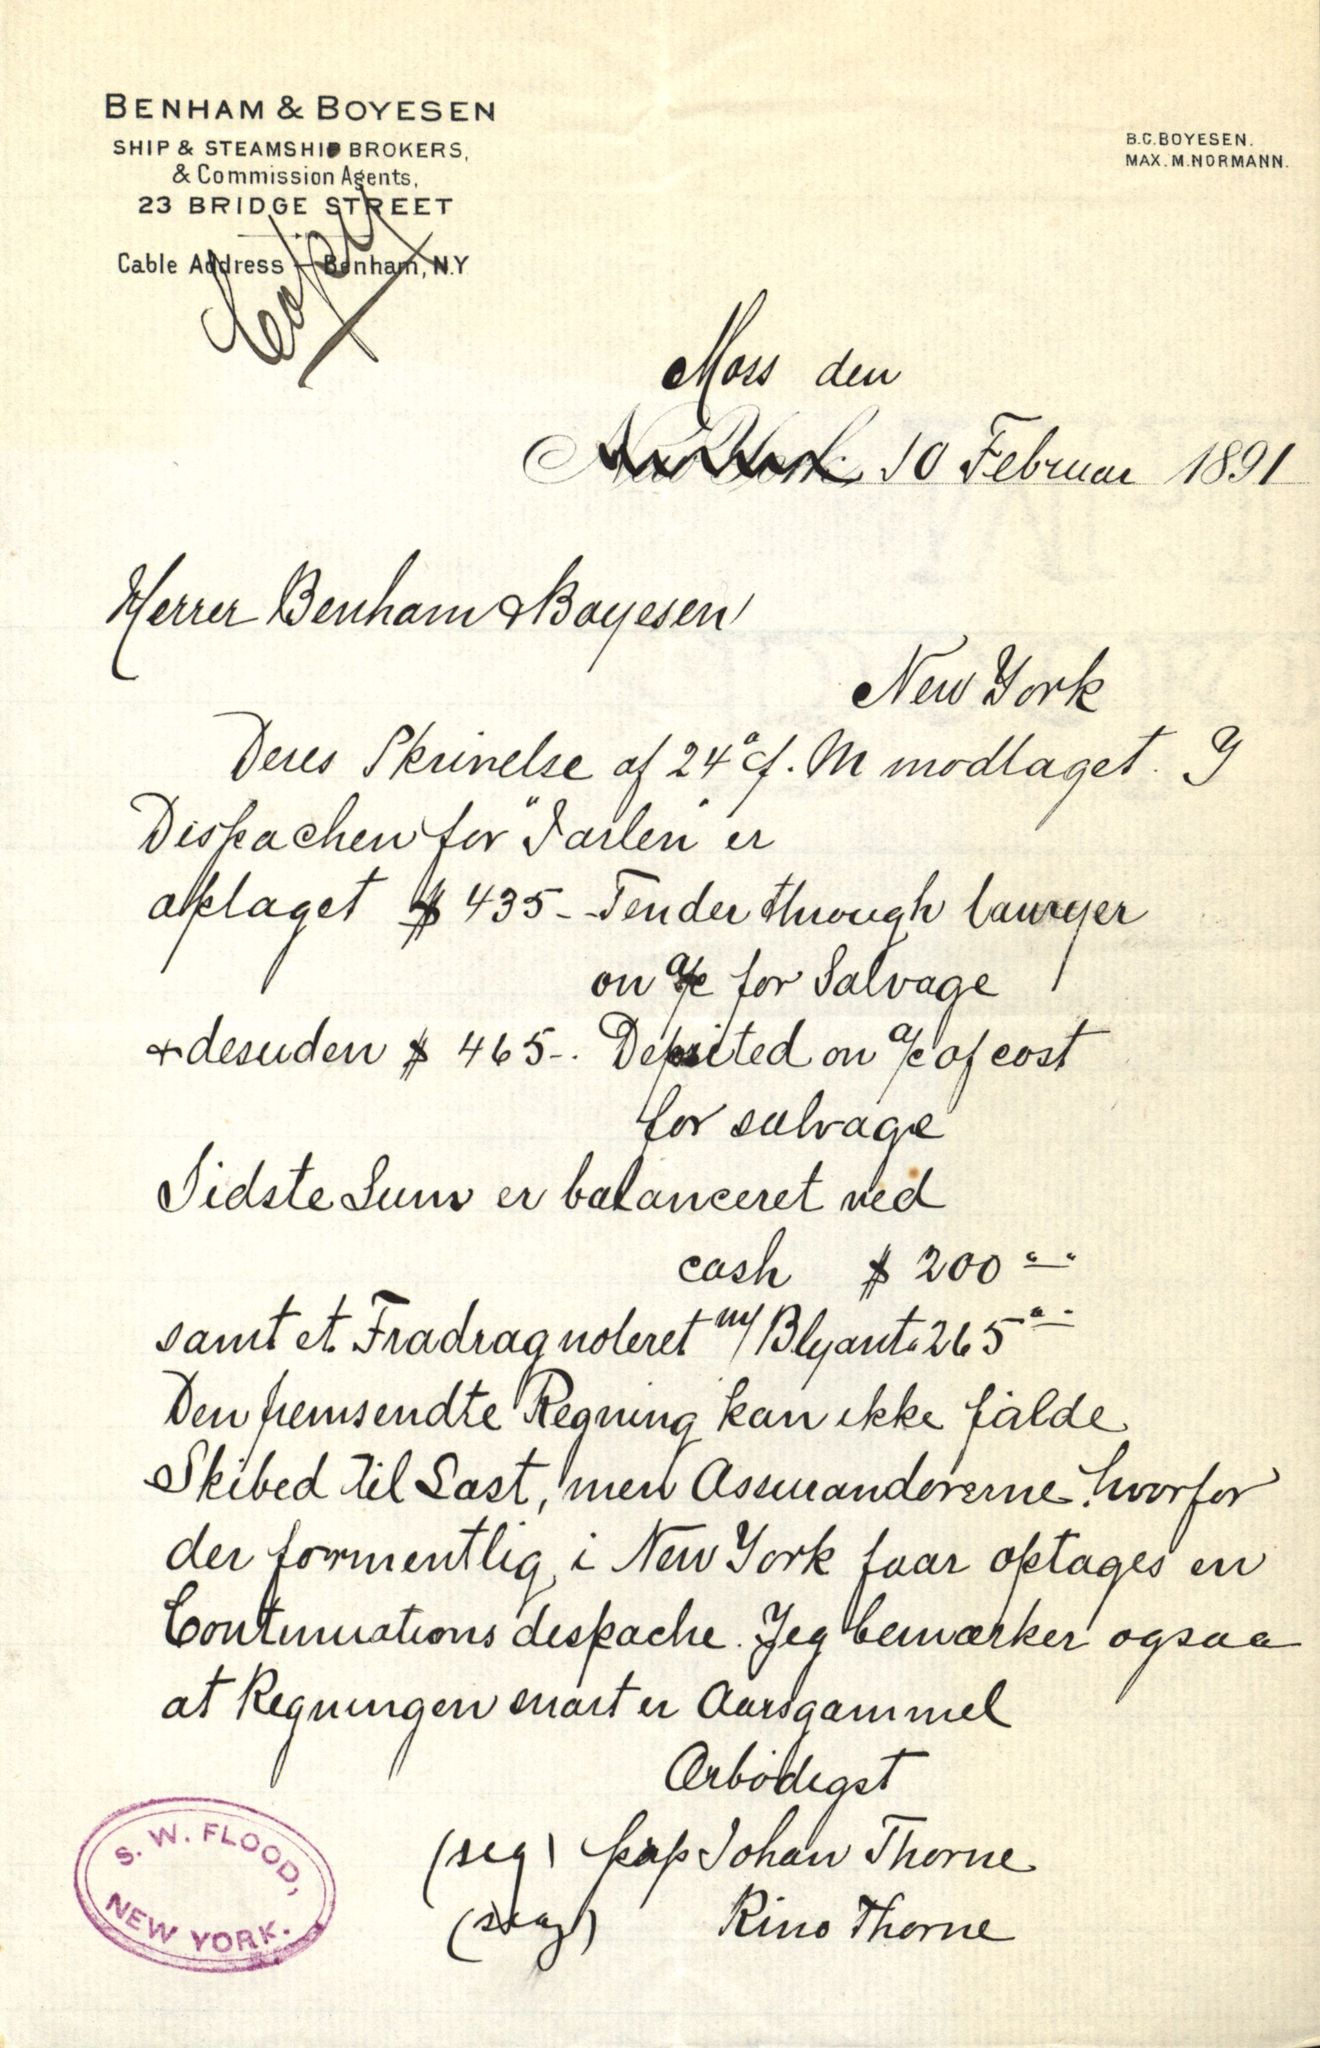 BENHAM & BOYESEN
SHIP & STEAMSHIP BROKERS,
& Commission Agents,
23 BRIDGE STREET
Cable Address - Benham, N.Y
Copy
B.C. BOYESEN.
MAX. M. NORMANN.
Moss den
New York 10 Februar 1891
Herrer Benham & Boyesen
New York
Deres Skrivelse af 24' f. M modtaget. I
Dispachen for "Jarlen" er
optaget $ 435 - Tender through lawyer
on a/c for Salvage
+ desuden $ 465 -. Deposited on a/c of cost
for salvage
Sidste Sum er balanceret ved
cash $ 200 "-"
samt et Fradrag noteret m/ Blyant " 265 "-"
Den fremsendte Regning kan ikke falde
Skibed til Last, men Assurandørerne, hvorfor
der formentlig i New York faar optages en
Continuationsdespache. Jeg bemærker ogsaa
at Regningen snart er Aarsgammel
Ærbødigst
(sig) pap Johan Thorne
(sig) Rino Thorne
S. W. FLOOD,
NEW YORK.